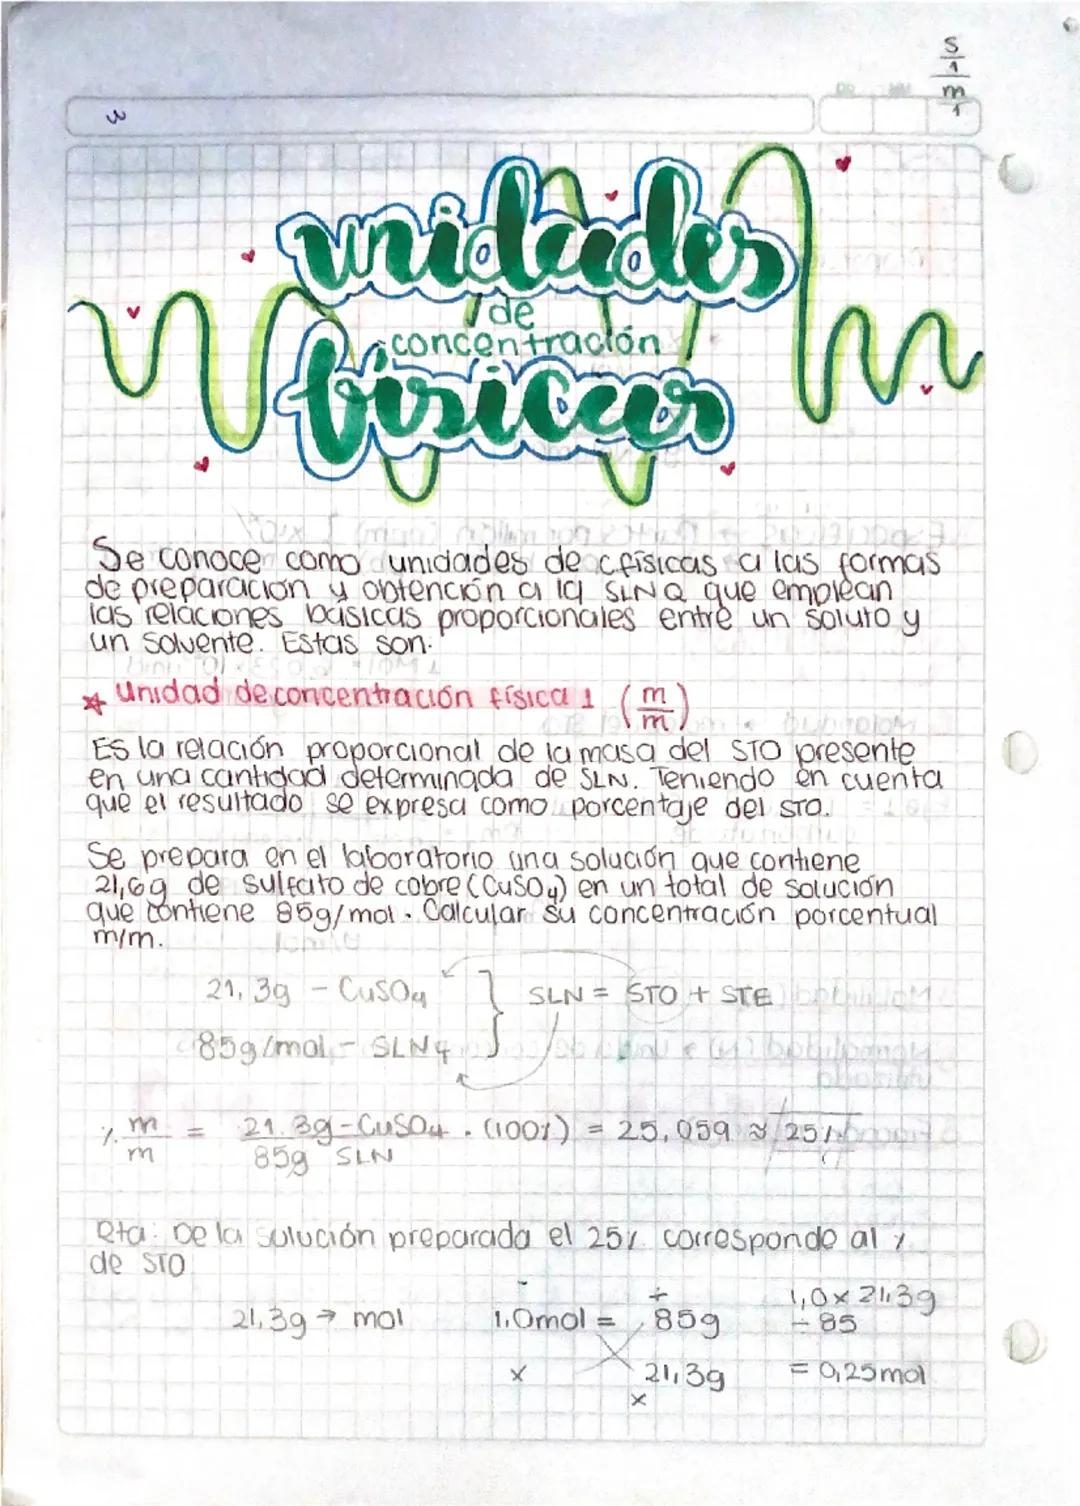 S
1
m
1
unidades
de
concentración
físicas
Se conoce como unidades de c físicas a las formas
de preparación y obtención a la SLN Q que emplean
las relaciones básicas proporcionales entre un soluto y
un solvente. Estas son.
* Unidad de concentración física 1 (m/m)
Es la relación proporcional de la masa del STO presente
en una cantidad determinada de SLN. Teniendo en cuenta
que el resultado se expresa como porcentaje del STO.
Se prepara en el laboratorio una solución que contiene
21,6g de sulfato de cobre (CuSO4) en un total de solución
que contiene 85g/mol. Calcular su concentración porcentual
m/m.
21,3g - CuSO4 } SLN = STO + STE
85g/mol - SLN
% m/m = 21.3g-CuSO4 / 85g SLN . (100%) = 25,059 ≈ 25%
Rta: De la solución preparada el 25% corresponde al %
de STO
21,3g → mol 1,0mol = 85g 1,0 x 21,3g
÷ 85
x 21,3g = 0,25mol
x